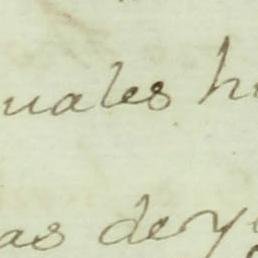 uales h
as dery